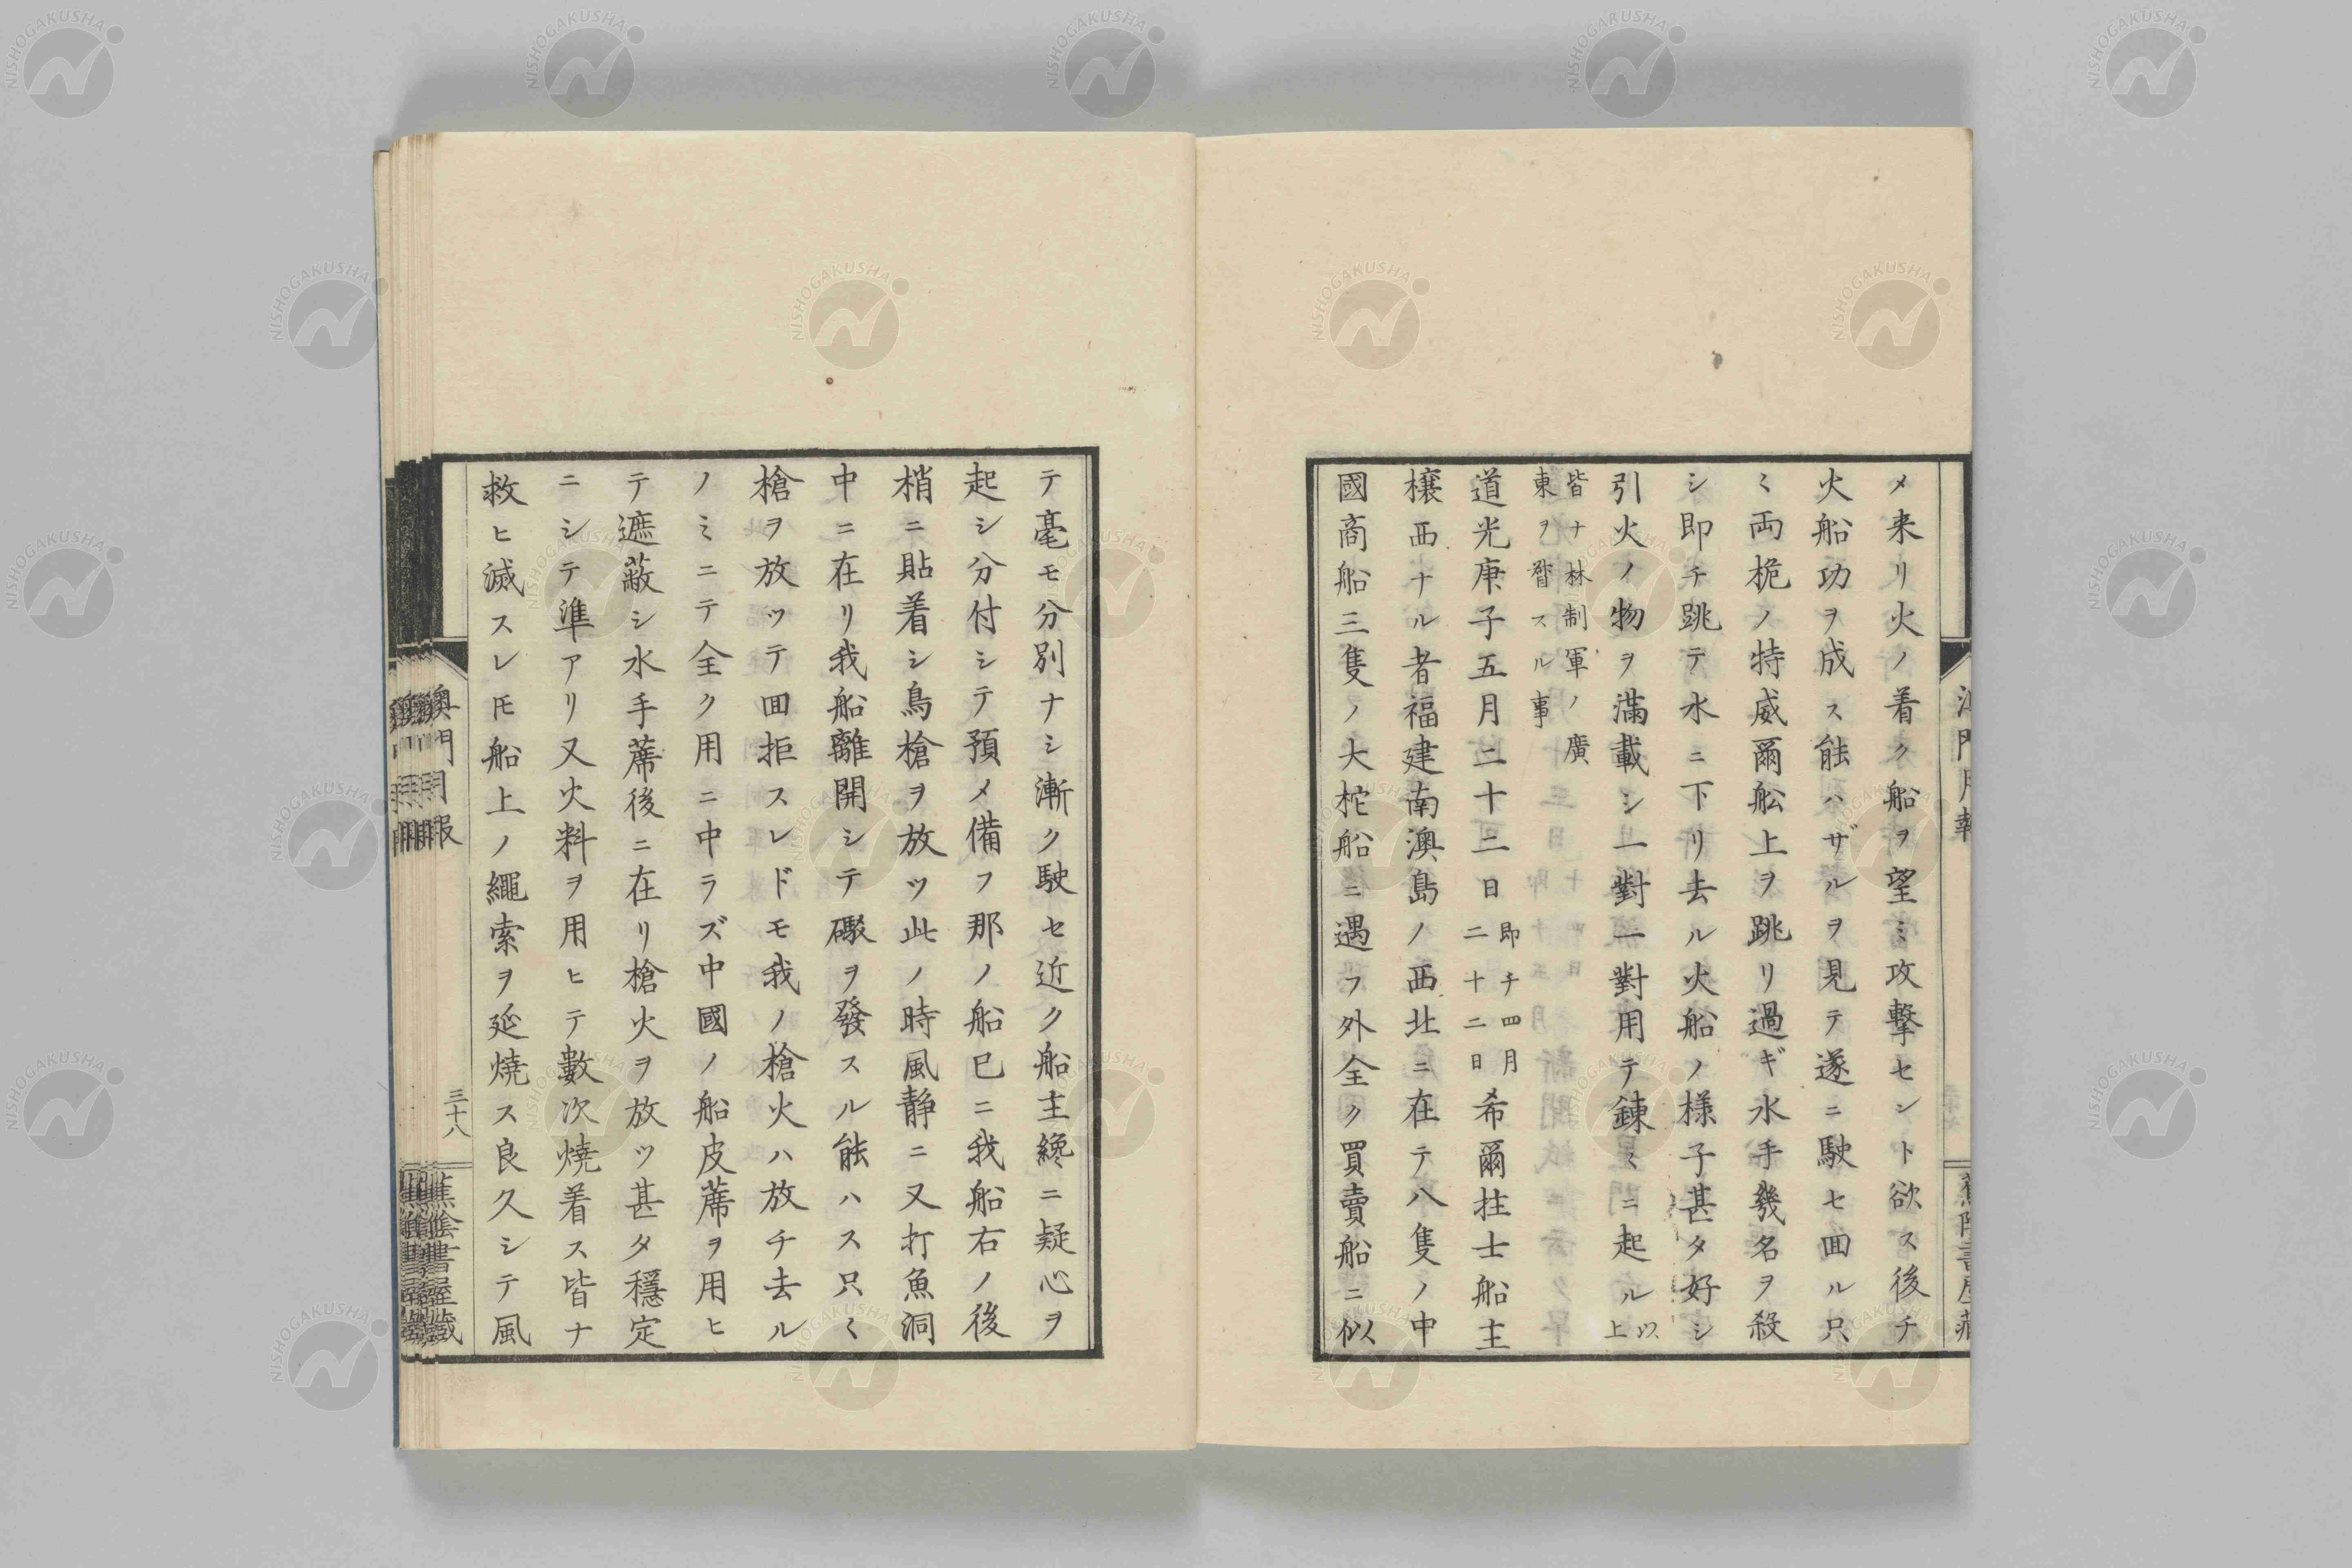 メ来リ火ノ着ク船ヲ望ミ攻撃セント欲ス後チ
火船功ヲ成ス能ハザルヲ見テ遂ニ駛セ回ル只
ミ両桅ノ特威爾舩上ヲ跳リ過ギ水手幾名ヲ殺
シ即チ跳テ水ニ下リ去ル火船ノ様子甚タ好シ
引火ノ物ヲ滿載シ一對一對用テ錬ミニ起ル以上
皆ナ林制軍ノ廣
東ヲ督スル事
道光庚子五月二十二日即チ四月二十二日希爾拄士船主
檺西ナル者福建南澳島ノ西北ニ在テ八隻ノ中
國商船三隻ノ大柁船ニ遇フ外全ク買賣船ニ似
テ毫モ分別ナシ漸ク駛セ近ク船主纔ニ疑心ヲ
起シ分付シテ預メ備フ那ノ船已ニ我船右ノ後
梢ニ貼着シ鳥槍ヲ放ツ此ノ時風静ニ又打魚洞
中ニ在リ我船離開シテ礮ヲ發スル能ハス只く
槍ヲ放ッテ回拒スレドモ我ノ槍火ハ放チ去ル
ノミニテ全ク用ニ中ラズ中國ノ船皮蓆ヲ用ヒ
テ遮蔽シ水手蓆後ニ在リ槍火ヲ放ツ甚タ穩定
ニシテ準アリ又火料ヲ用ヒテ數次燒着ス皆ナ
救ヒ滅スレ𪜈船上ノ繩索ヲ延燒ス良久シテ風
澳門月報
三十八
蕉陰書屋藏